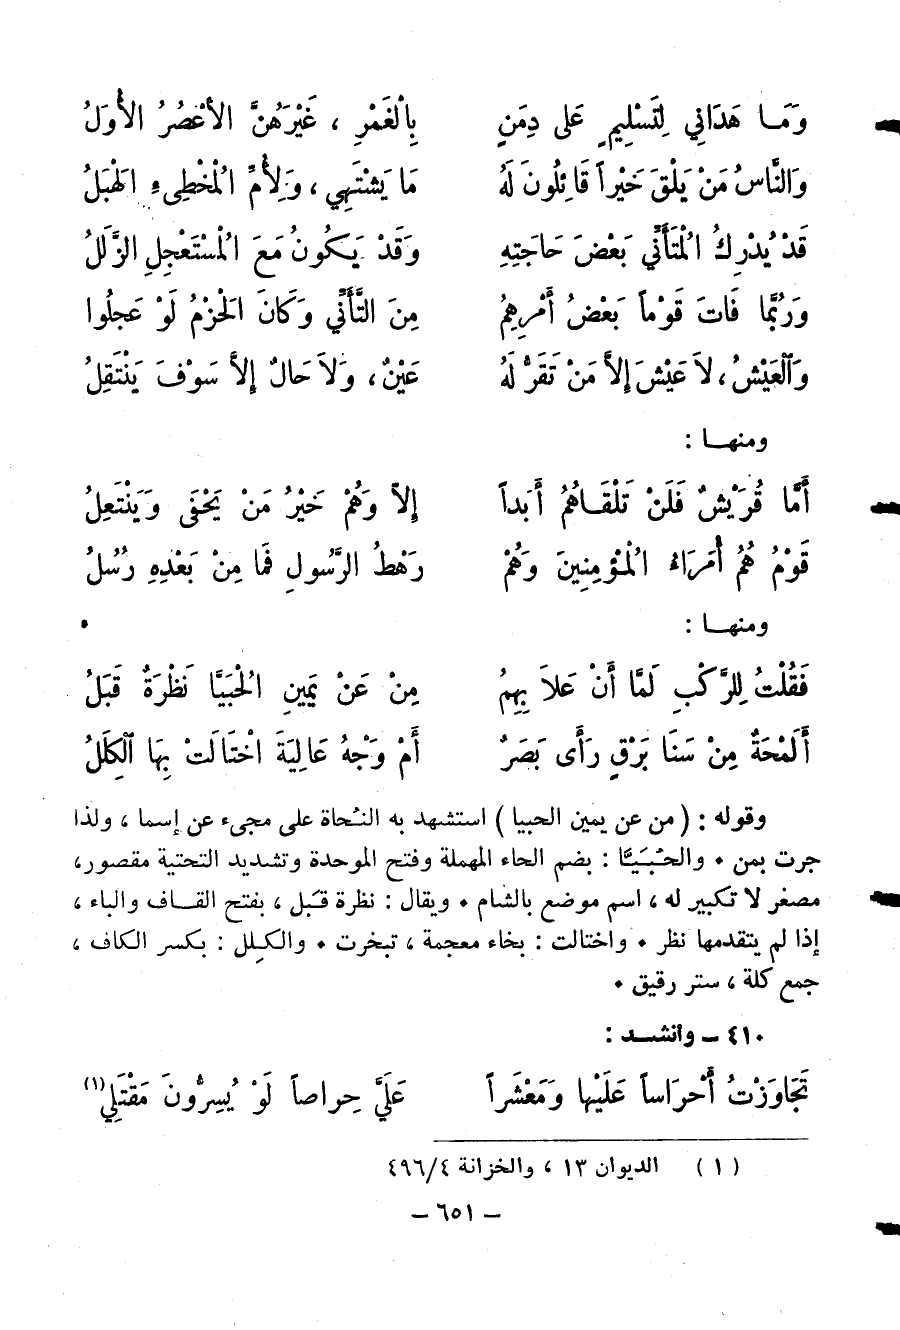 وَمَا هَدَانِي لِتَسْلِيمٍ عَلى دِمَنٍ بِالْغَمْرِ ، غَيَّرَهُنَّ الأَعْصُرُ الأُوَلُ
وَالنَّاسُ مَنْ يَلْقَ خَيْراً قَائِلُونَ لَهُ مَا يَشْتَهِي ، وَلِأُمِّ الْمُخْطِىءِ الهَبَلُ
قَدْ يُدْرِكُ الْمُتَأَنِّي بَعْضَ حَاجَتِهِ وَقَدْ يَكُونُ مَعَ الْمُسْتَعْجِلِ الزَّلَلُ
وَرُبَّمَا فَاتَ قَوْماً بَعْضُ أَمْرِهِمُ مِنَ التَّأَنِّي وَكَانَ الحَزْمُ لَوْ عَجِلُوا
وَالْعَيْشُ ، لاَ عَيْشَ إِلاَّ مَنْ تَقَرُّ لَهُ عَيْنٌ ، وَلاَ حَالٌ إِلاَّ سَوْفَ يَنْتَقِلُ
ومنها :
أَمَّا قُرَيْشٌ فَلَنْ تَلْقَاهُمُ أَبَداً إِلاَّ وَهُمْ خَيْرُ مَنْ يَحْفَى وَيَنْتَعِلُ
قَوْمٌ هُمُ أُمَرَاءُ الْمُؤْمِنِينَ وَهُمْ رَهْطُ الرَّسُولِ فَمَا مِنْ بَعْدِهِ رُسُلُ
ومنها :
فَقُلْتُ لِلرَّكْبِ لَمَّا أَنْ عَلاَ بِهِمُ مِنْ عَنْ يَمِينِ الْحُبَيَّا نَظْرَةٌ قَبَلُ
أَلَمْحَةٌ مِنْ سَنَا بَرْقٍ رَأَى بَصَرٌ أَمْ وَجْهُ عَالِيَةَ اخْتَالَتْ بِهَا الْكِلَلُ
وقوله : (من عن يمين الحبيا) استشهد به النُحاة على مجيء عن إسما ، ولذا
جرت بمن • والحُبَيَّا : بضم الحاء المهملة وفتح الموحدة وتشديد التحتية مقصور،
مصغر لا تكبير له ، اسم موضع بالشام • ويقال : نظرة قبَل ، بفتح القاف والباء ،
إذا لم يتقدمها نظر • واختالت : بخاء معجمة ، تبخرت • والكِلل : بكسر الكاف ،
جمع كلة ، ستر رقيق •
٤١٠ – وانشد :
تَجَاوَزْتُ أَحْرَاساً عَلَيْها وَمَعْشَراً عَلَيَّ حِراصاً لَوْ يُسِرُّونَ مَقْتَلِي(١)
(١) الديوان ١٣ ، والخزانة ٤٩٦/٤
– ٦٥١ –